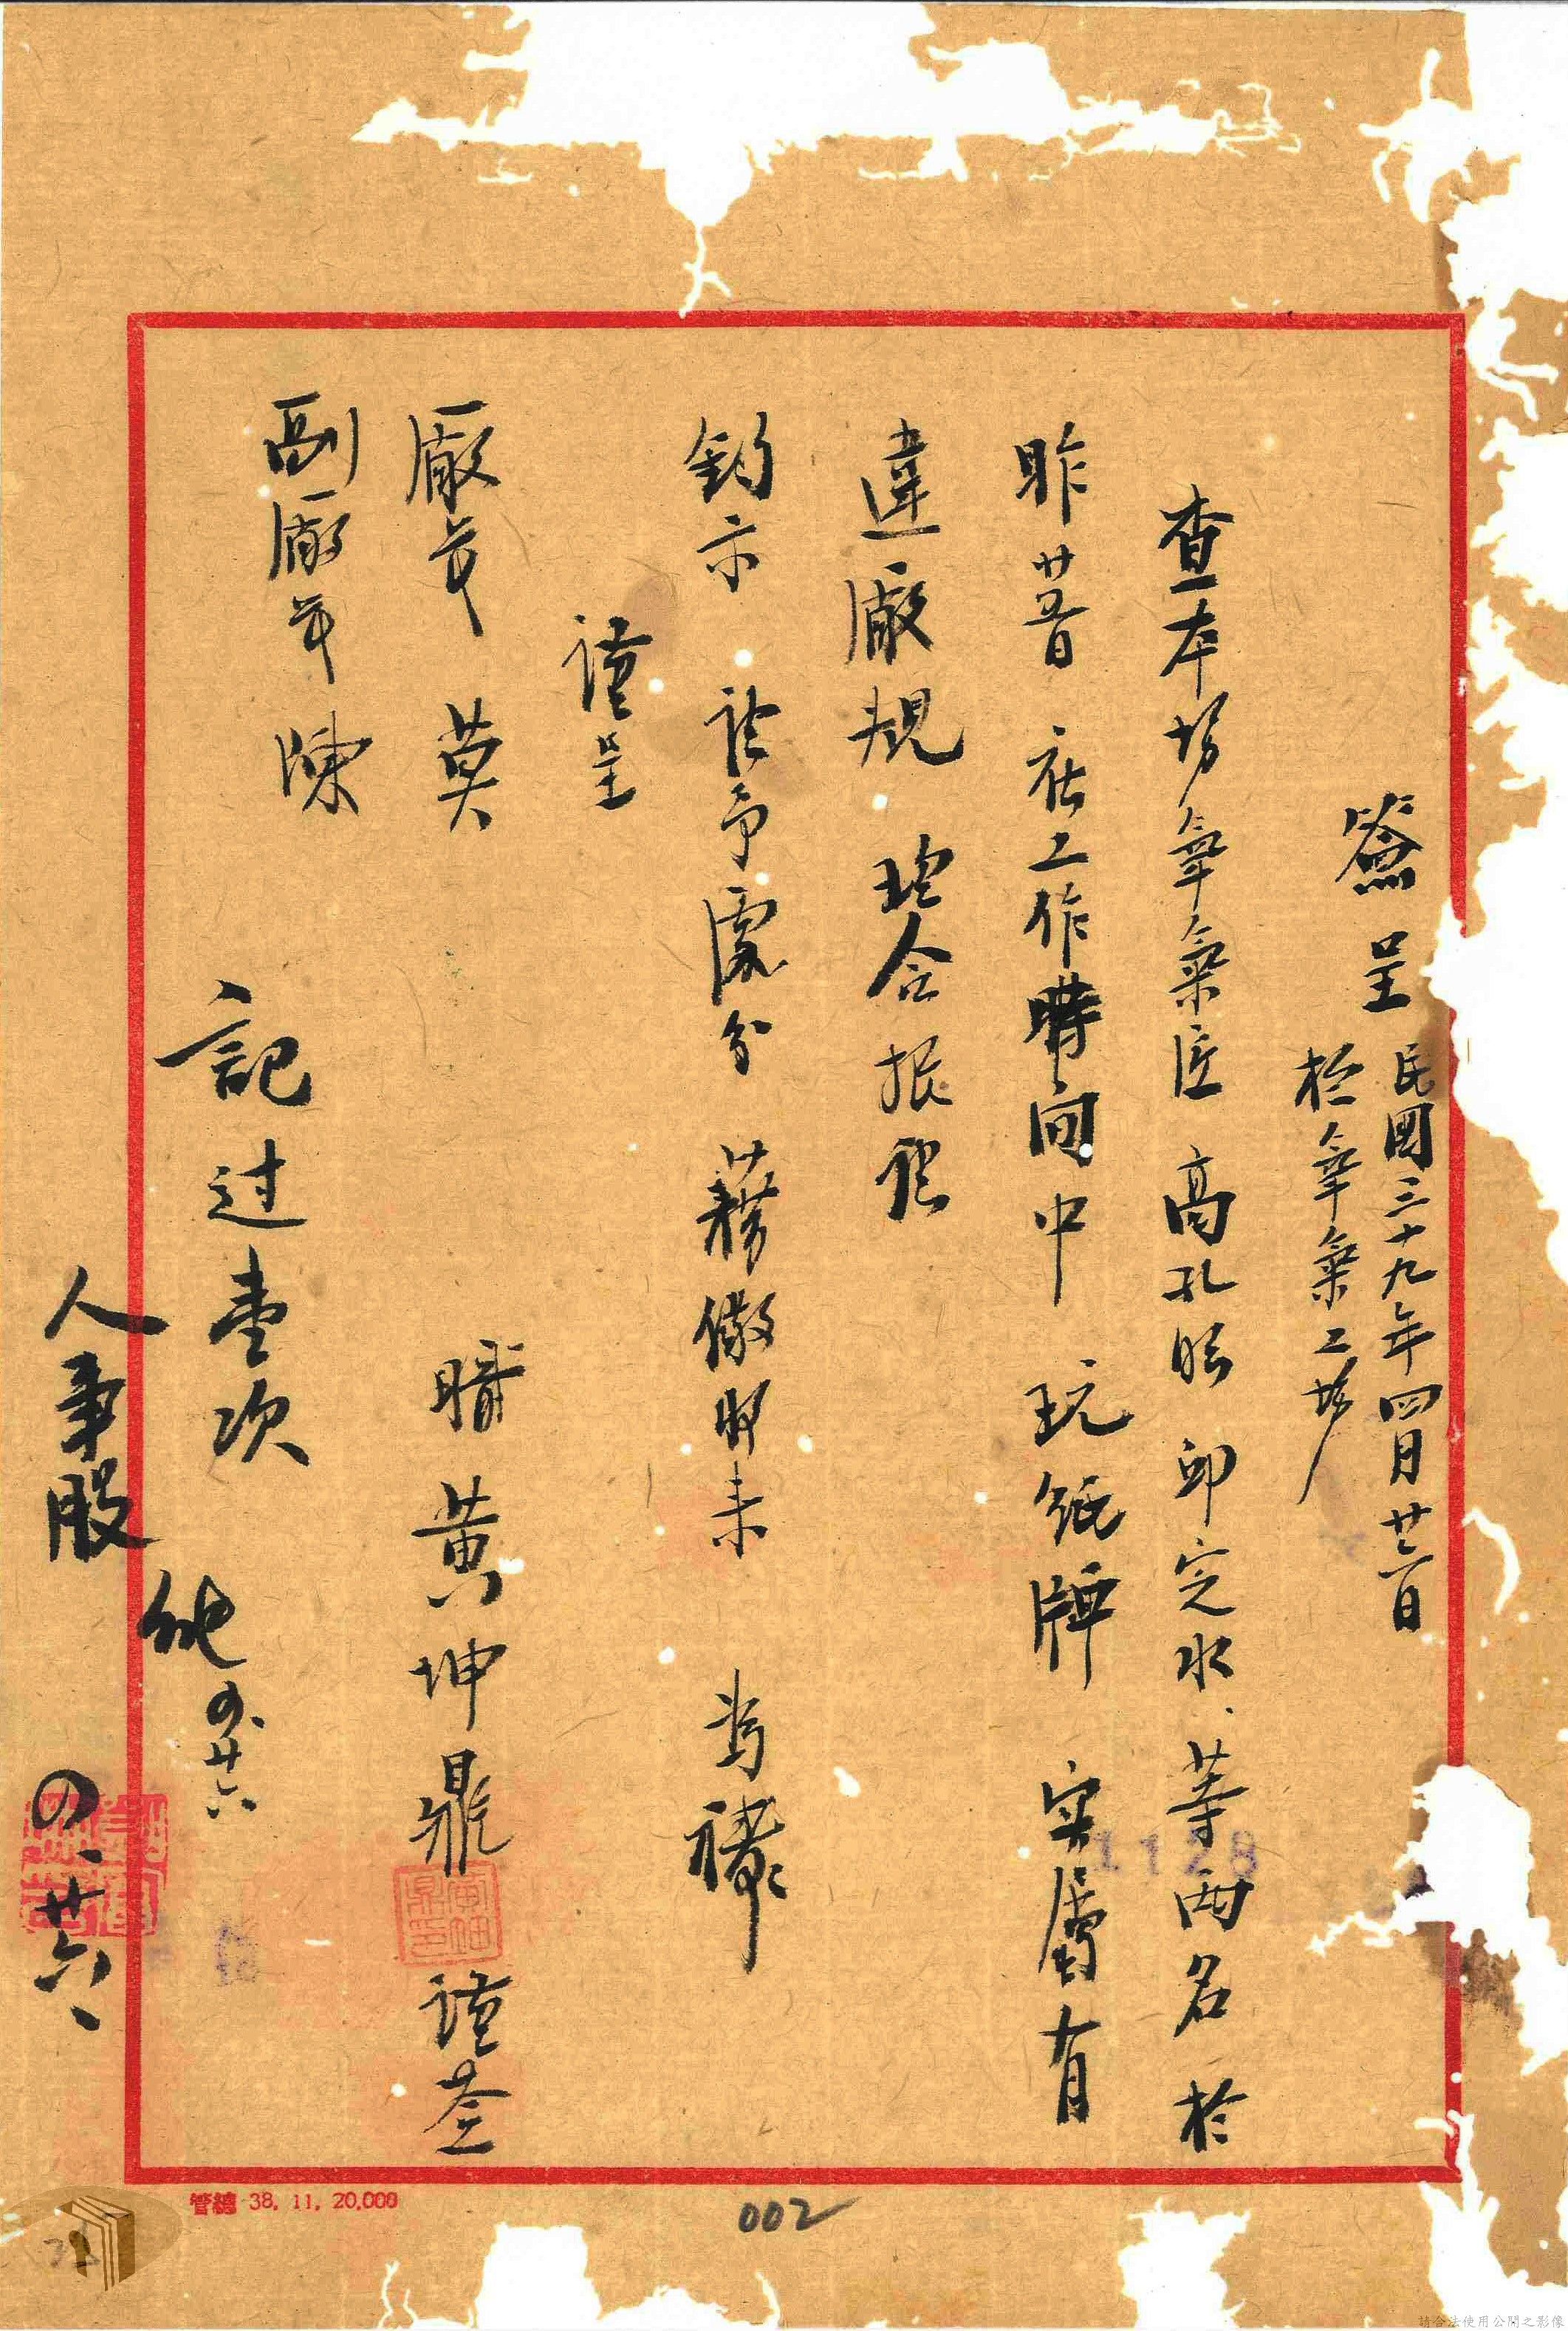 簽呈 民國三十九年四月廿六日
於氧氣工場
查本場氧氣匠 高孔昭 邱定水、等兩名於
昨廿五日 在工作時间中 玩纸牌 实屬有
違廠規 理合报请
鈞示 請予處分 藉儆將来 為禱
謹呈
廠長 莫
副廠長 陳
職 黃坤鼎 謹叁
記过壹次
廿六
人事股
の、廿六、
1128
管總 38. 11. 20,000
002
請合法使用公開之影像